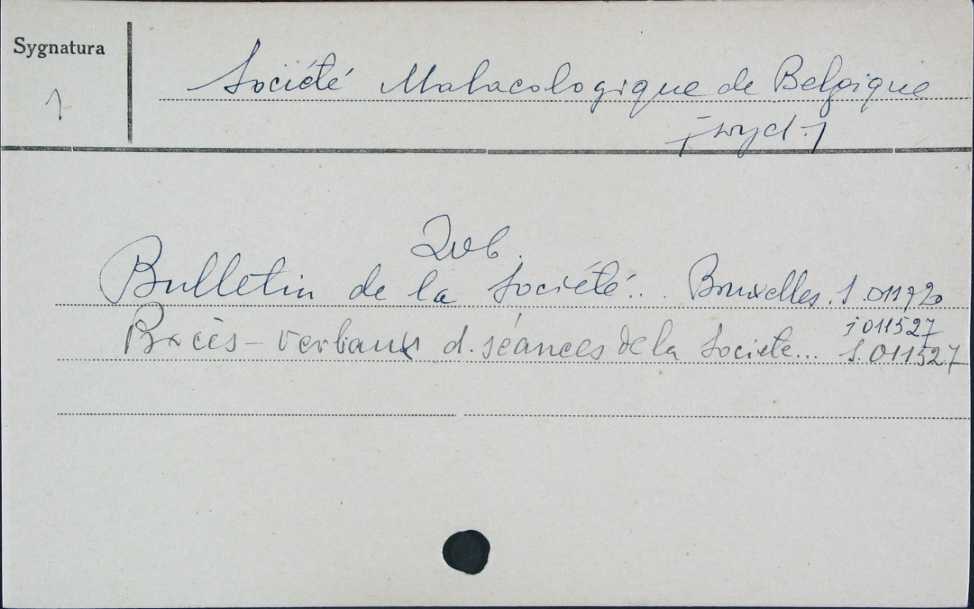 Sygnatura
Société Malacologique de Belgique
[wyd.]
Zob.
Bulletin de la Société... Bruxelles. S.011920
j 011527
Procès-verbaux d. séances de la Societe... S.011527